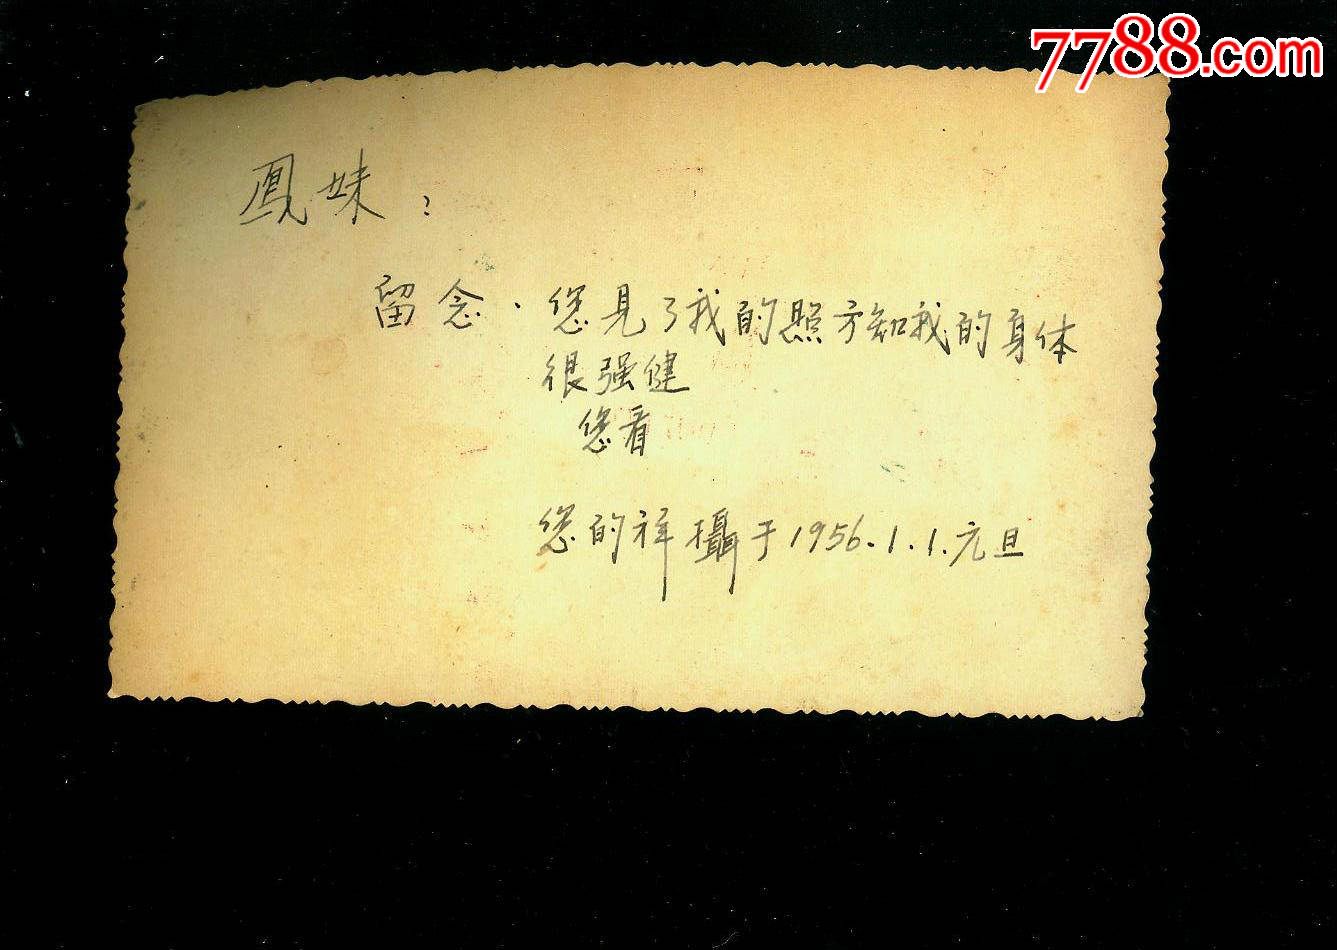 7788.com
鳳妹：
留念．您見了我的照方知我的身体
很强健
您看
您的祥攝于1956.1.1.元旦